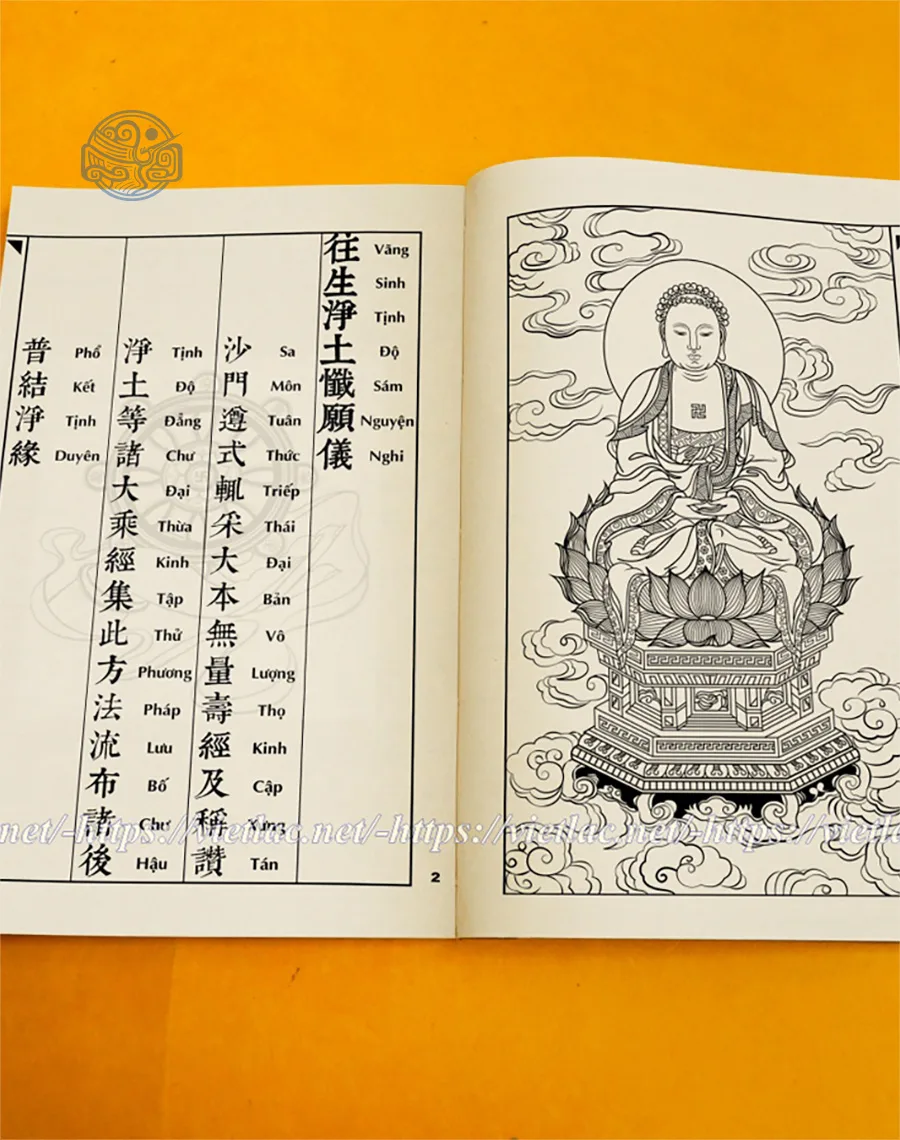 往生淨土懺願儀
Vãng Sinh Tịnh Độ Sám Nguyện Nghi
沙門遵式輒采大本無量壽經及稱讚
Sa Môn Tuân Thức Triếp Thái Đại Bản Vô Lượng Thọ Kinh Cập Xưng Tán
淨土等諸大乘經集此方法流布諸後
Tịnh Độ Đẳng Chư Đại Thừa Kinh Tập Thử Phương Pháp Lưu Bố Chư Hậu
普結淨緣
Phổ Kết Tịnh Duyên
2
卍
.net/-https://vietlac.net/-https://vietlac.net/-https://vietlac